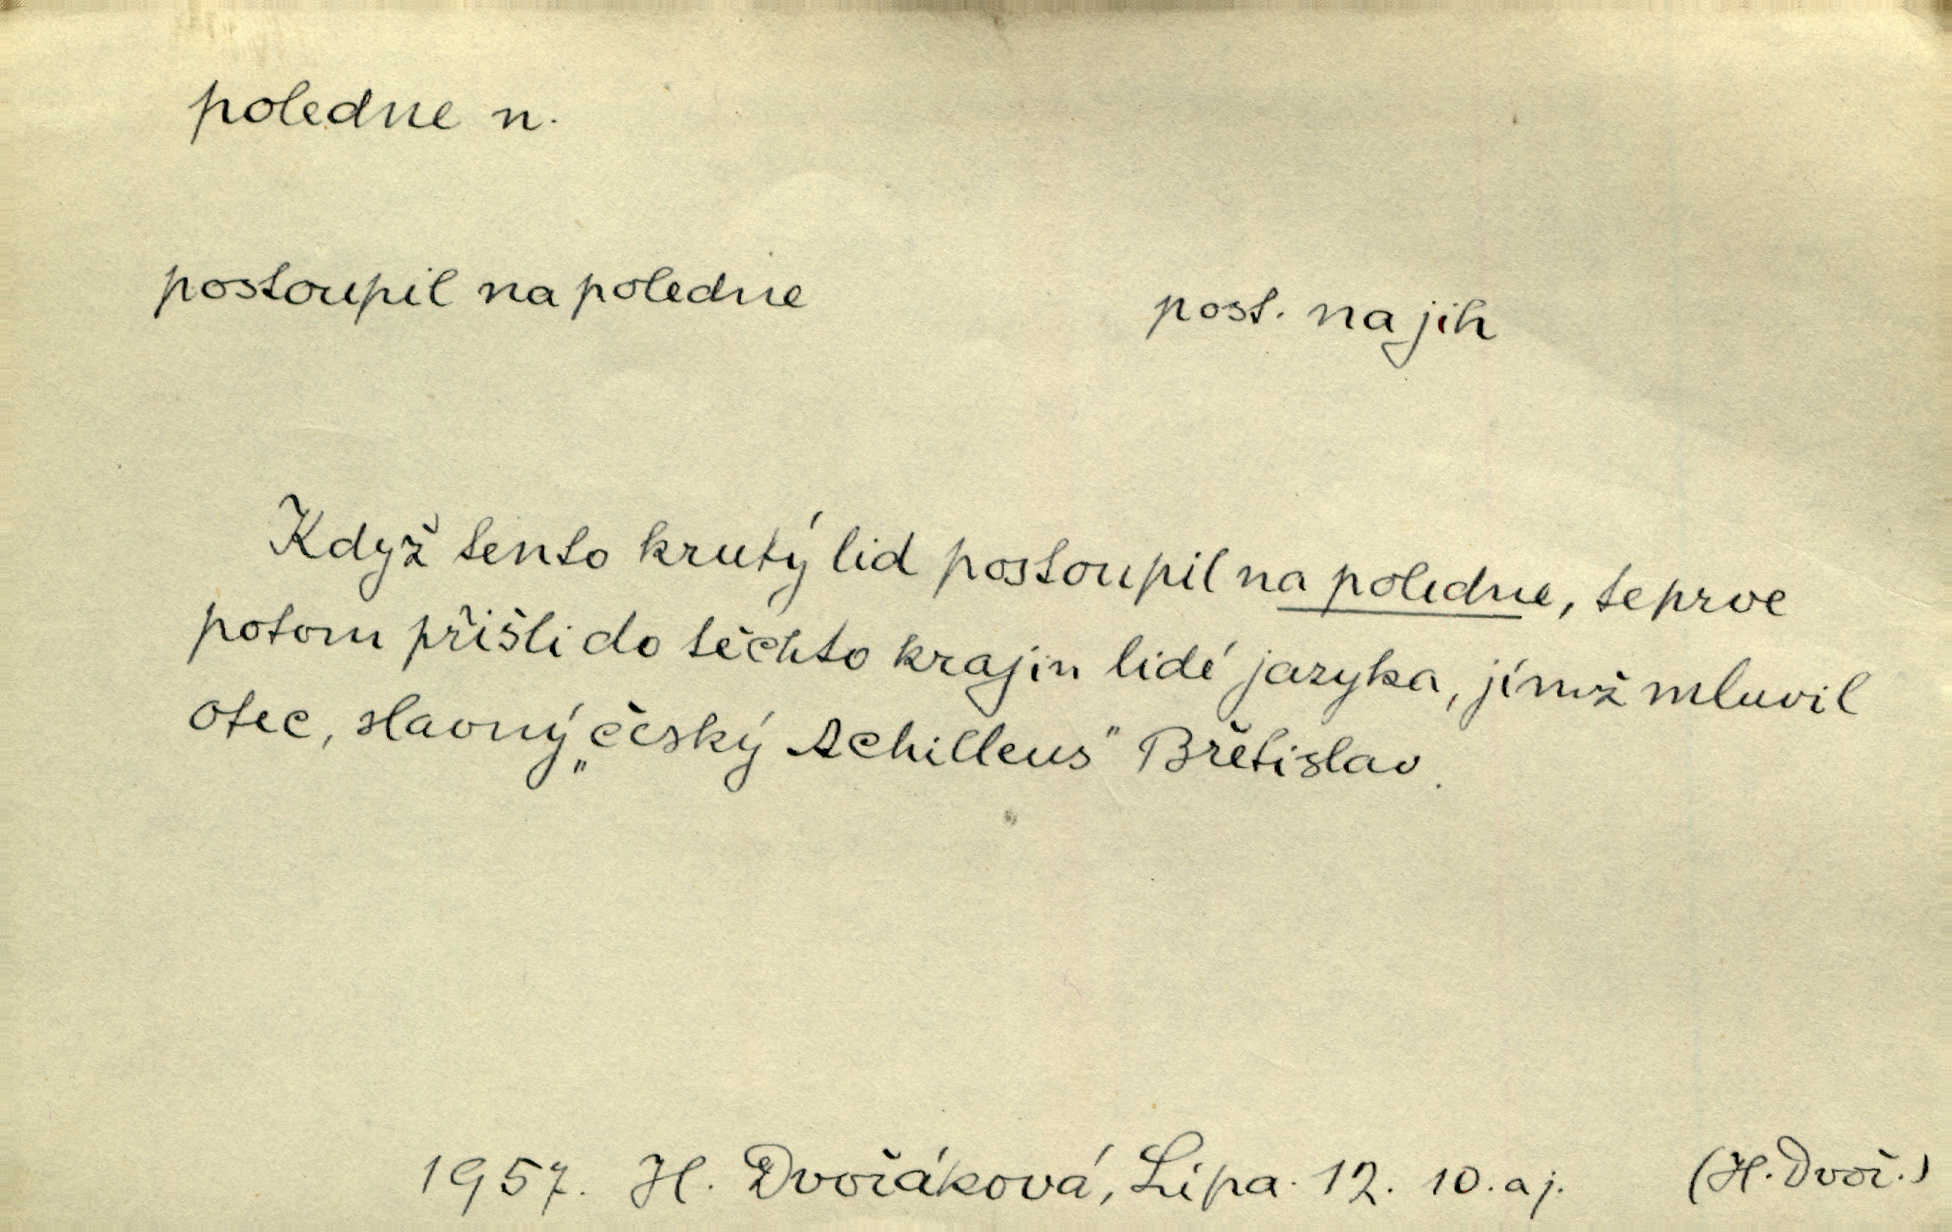 poledne n.
postoupil na poledne
post. na jih
Když tento krutý lid postoupil na poledne, teprve
potom přišli do těchto krajin lidé jazyka, jímž mluvil
otec, slavný „český Achilleus" Břetislav.
1957. H. Dvořáková, Lípa. 12. 10. aj. (H. Dvoř.)